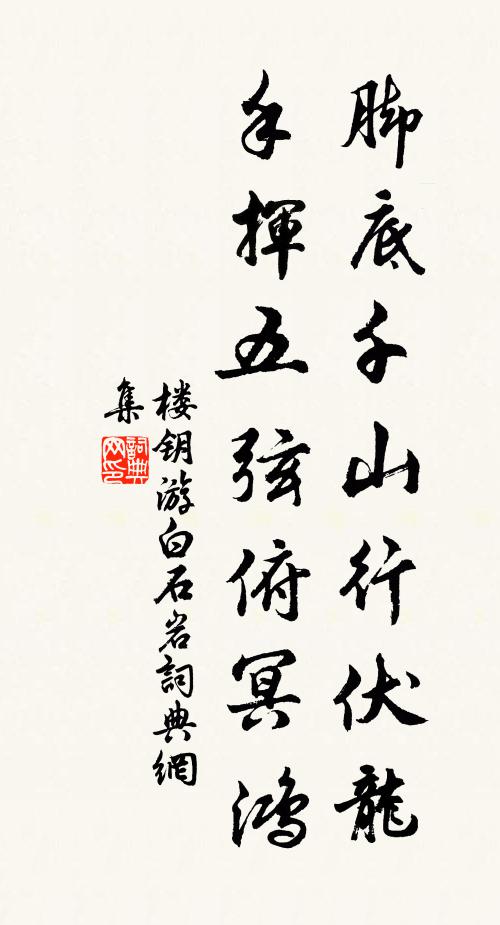 脚底千山行伏龍
手揮五弦俯冥鴻
楼钥游白石岩詞典網
集
詞典
网印